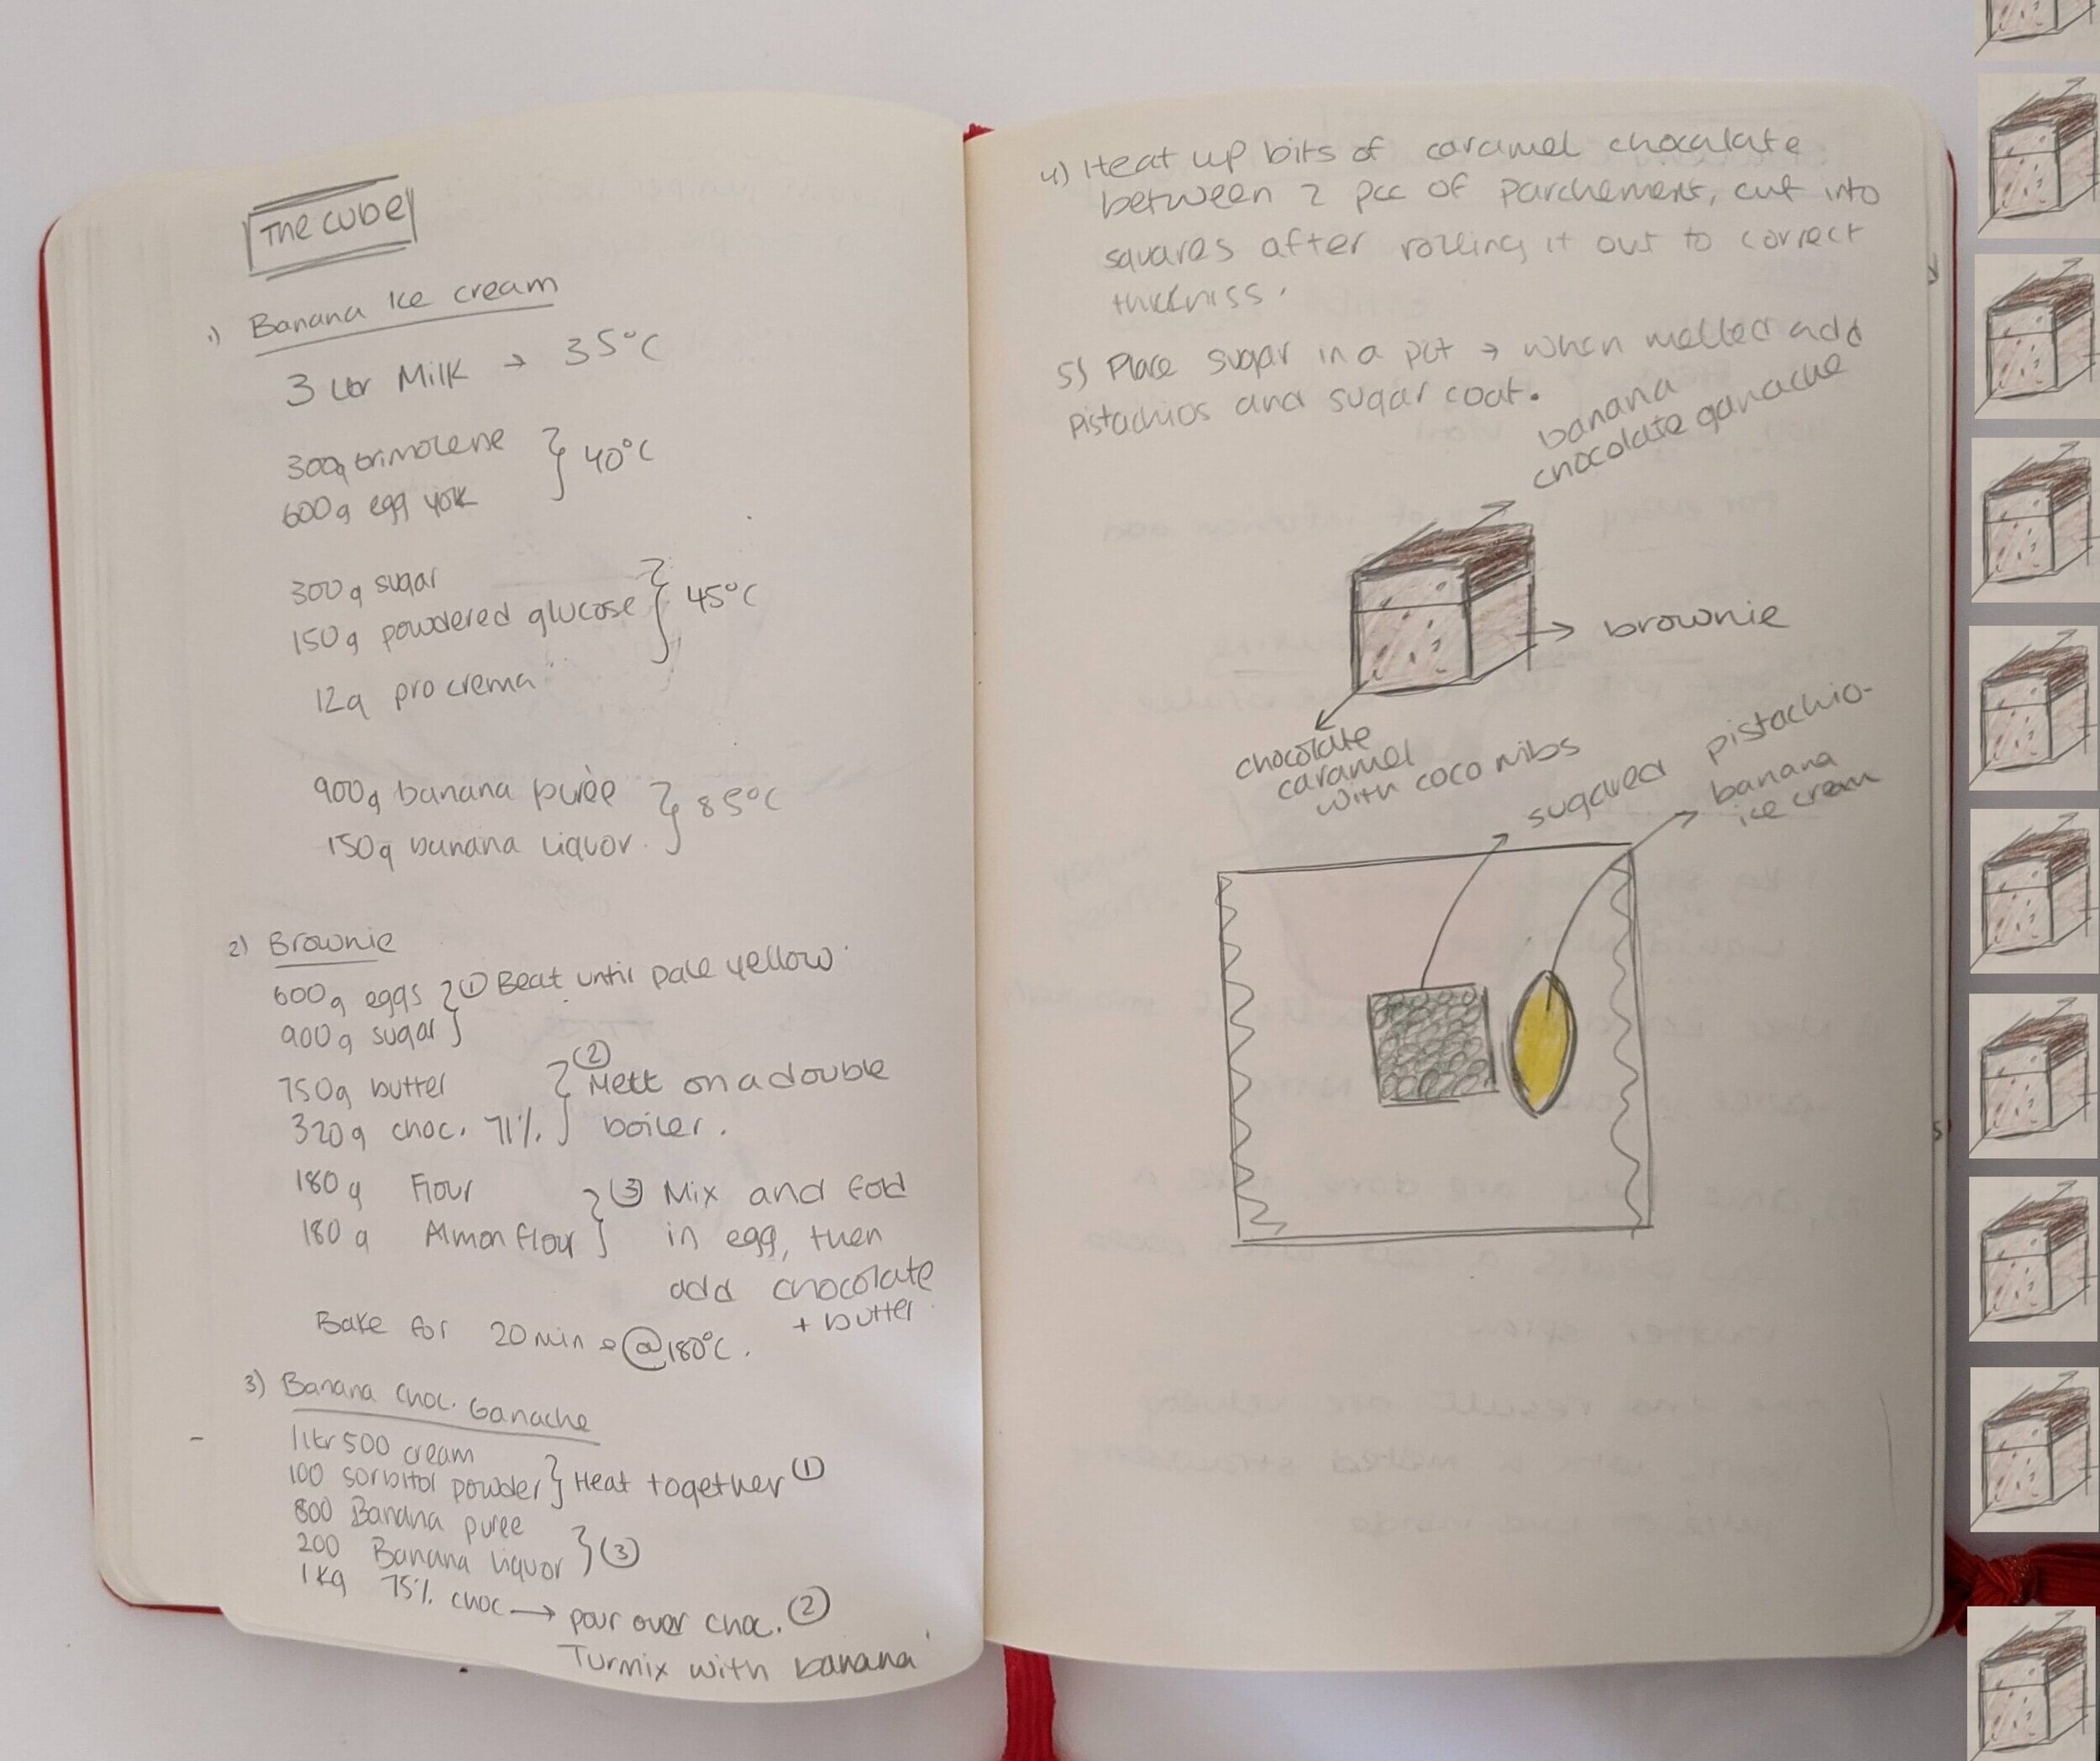 The cube
1) Banana Ice cream
3 Ltr Milk → 35°C
300g trimolene
600g egg yolk } 40°C
300g sugar
150g powdered glucose } 45°C
12g pro crema
900g banana purèe
150g banana liquor. } 85°C
2) Brownie
600g eggs
900g sugar } ① Beat until pale yellow.
750g butter
320g choc. 71% } ② Melt on a double
boiler.
180g Flour
180g Almon flour } ③ Mix and fold
in egg, then
add chocolate
+ butter
Bake for 20min @180°C.
3) Banana Choc. Ganache
1 ltr 500 cream
100 sorbitol powder } Heat together ①
800 Banana puree
200 Banana liquor } ③
1kg 75% choc → pour over choc. ②
Turmix with banana
4) Heat up bits of caramel chocalate
between 2 pcc of parchement, cut into
squares after rolling it out to correct
thickniss.
5) Place sugar in a pot → when melted add
pistachios and sugar coat.
banana
chocolate ganache
brownie
chocolate
caramel
with coco nibs
sugared pistachio-
banana
ice cream